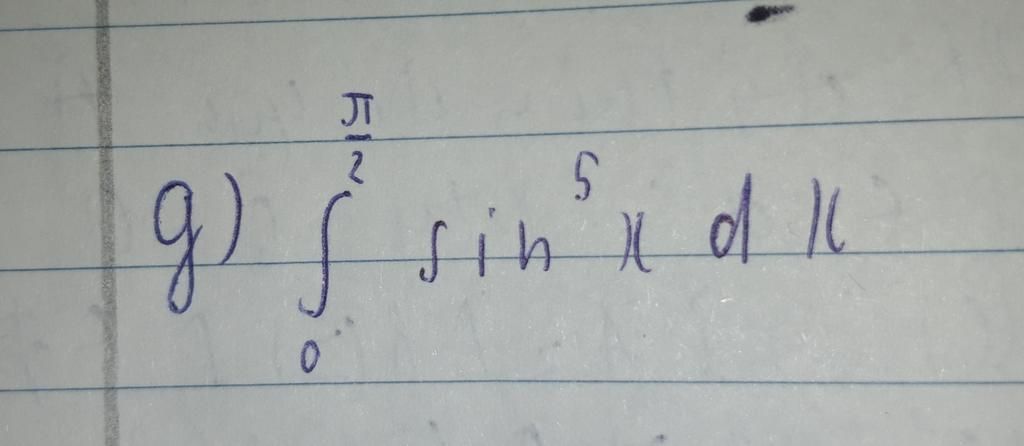 g) ∫₀^(π/2) sin⁵ x d x